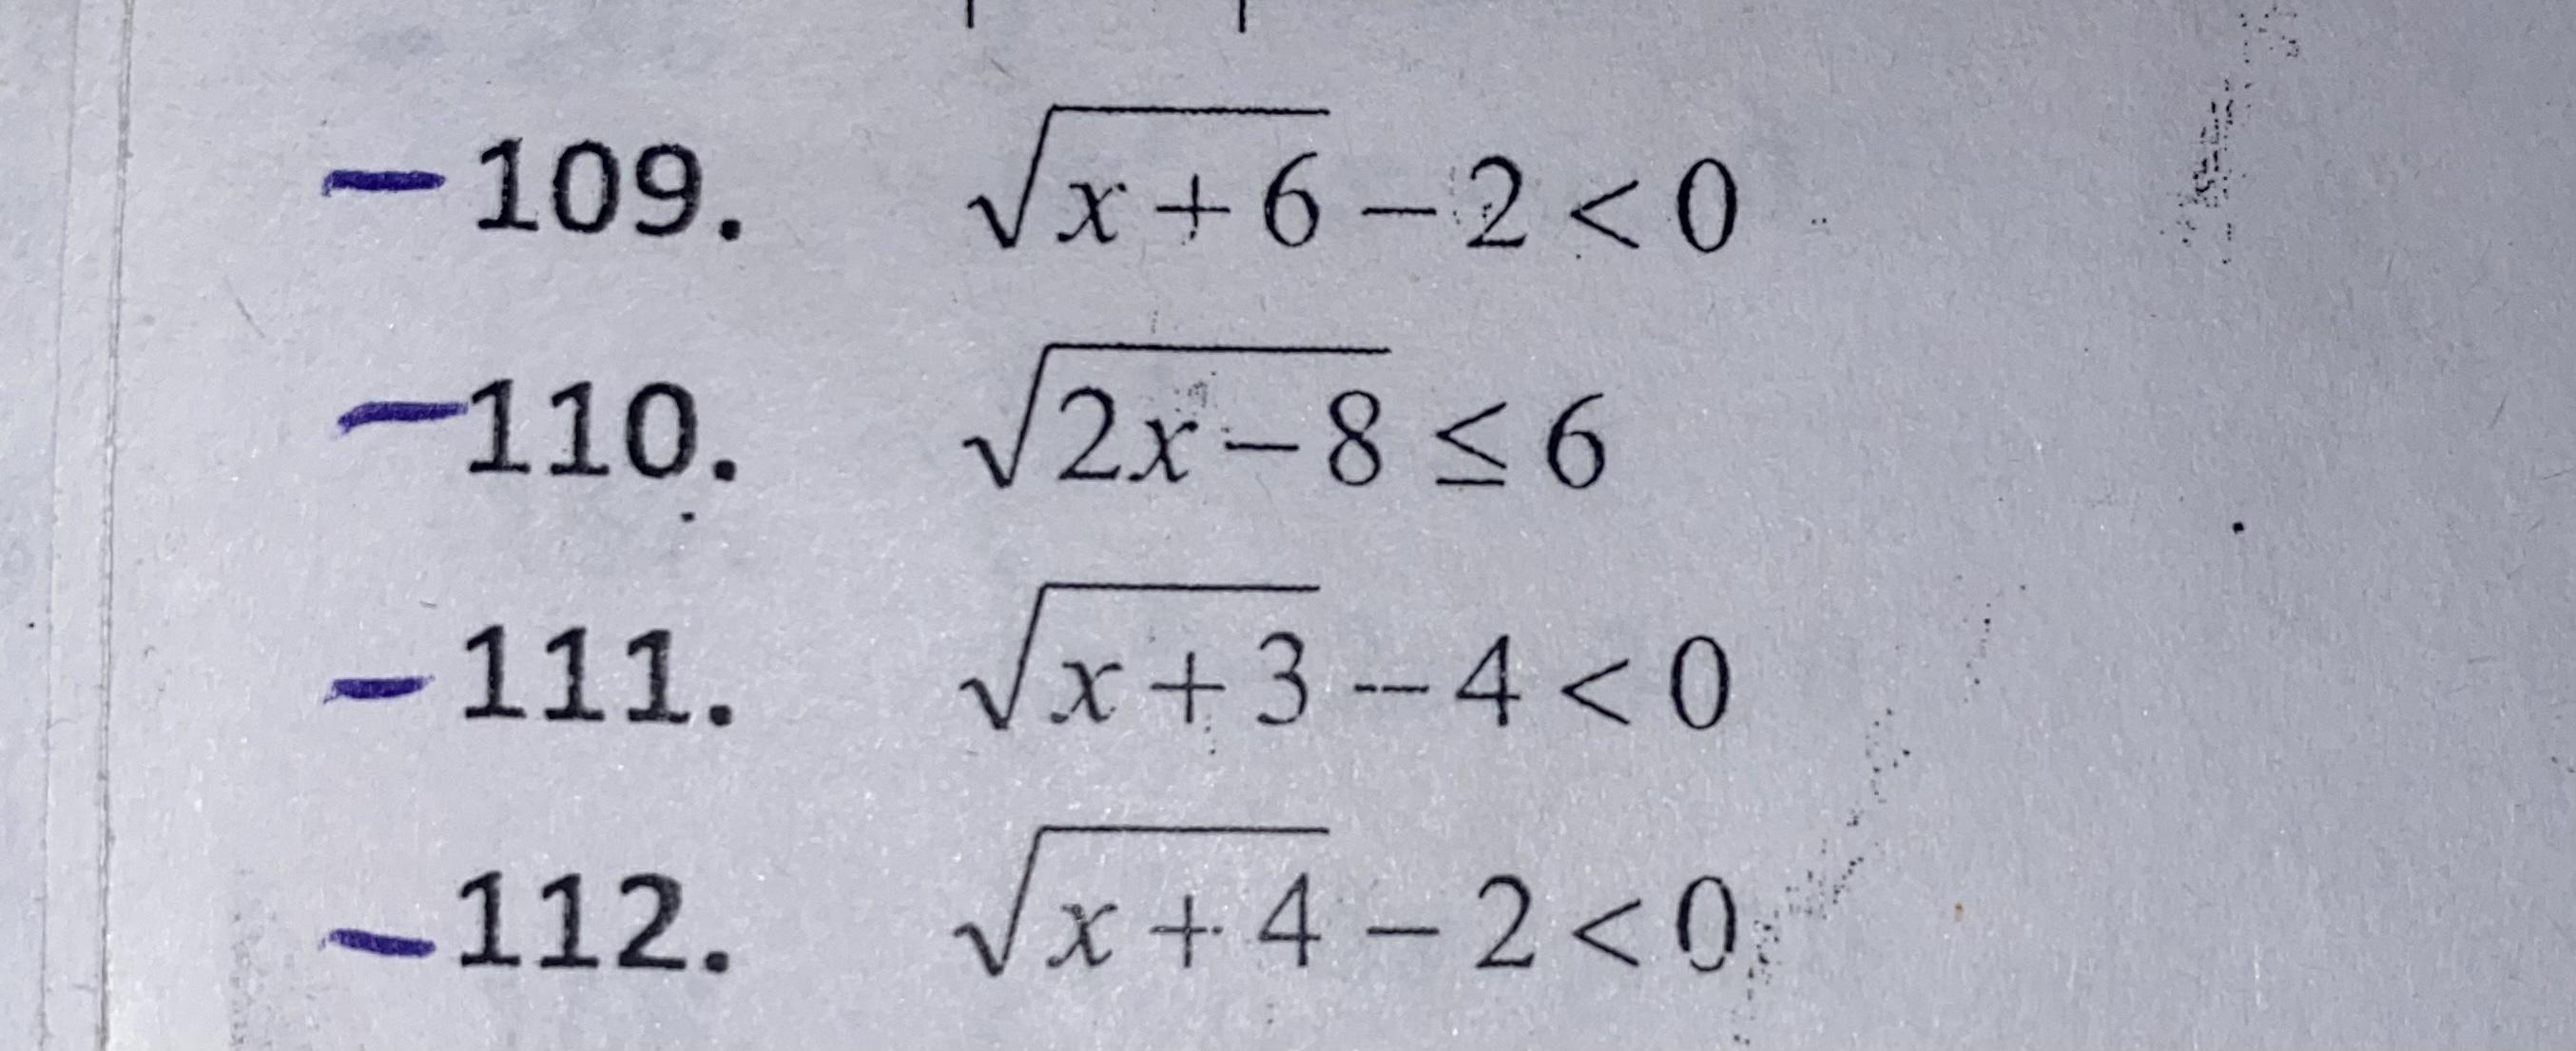 109. √x + 6 − 2 < 0
110. √2x − 8 ≤ 6
111. √x + 3 − 4 < 0
112. √x + 4 − 2 < 0